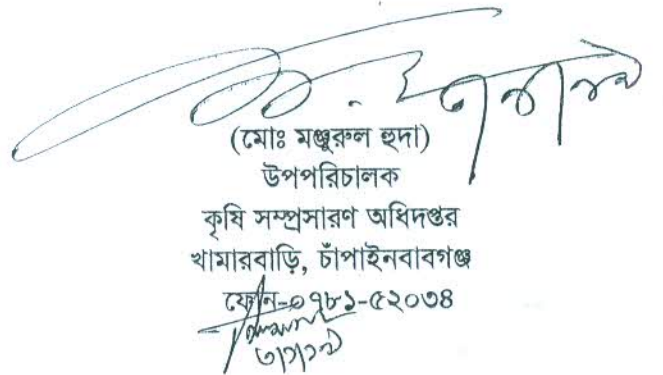 (মোঃ মঞ্জুরুল হুদা)
উপপরিচালক
কৃষি সম্প্রসারণ অধিদপ্তর
খামারবাড়ি, চাঁপাইনবাবগঞ্জ
ফোন-০৭৮১-৫২০৩৪